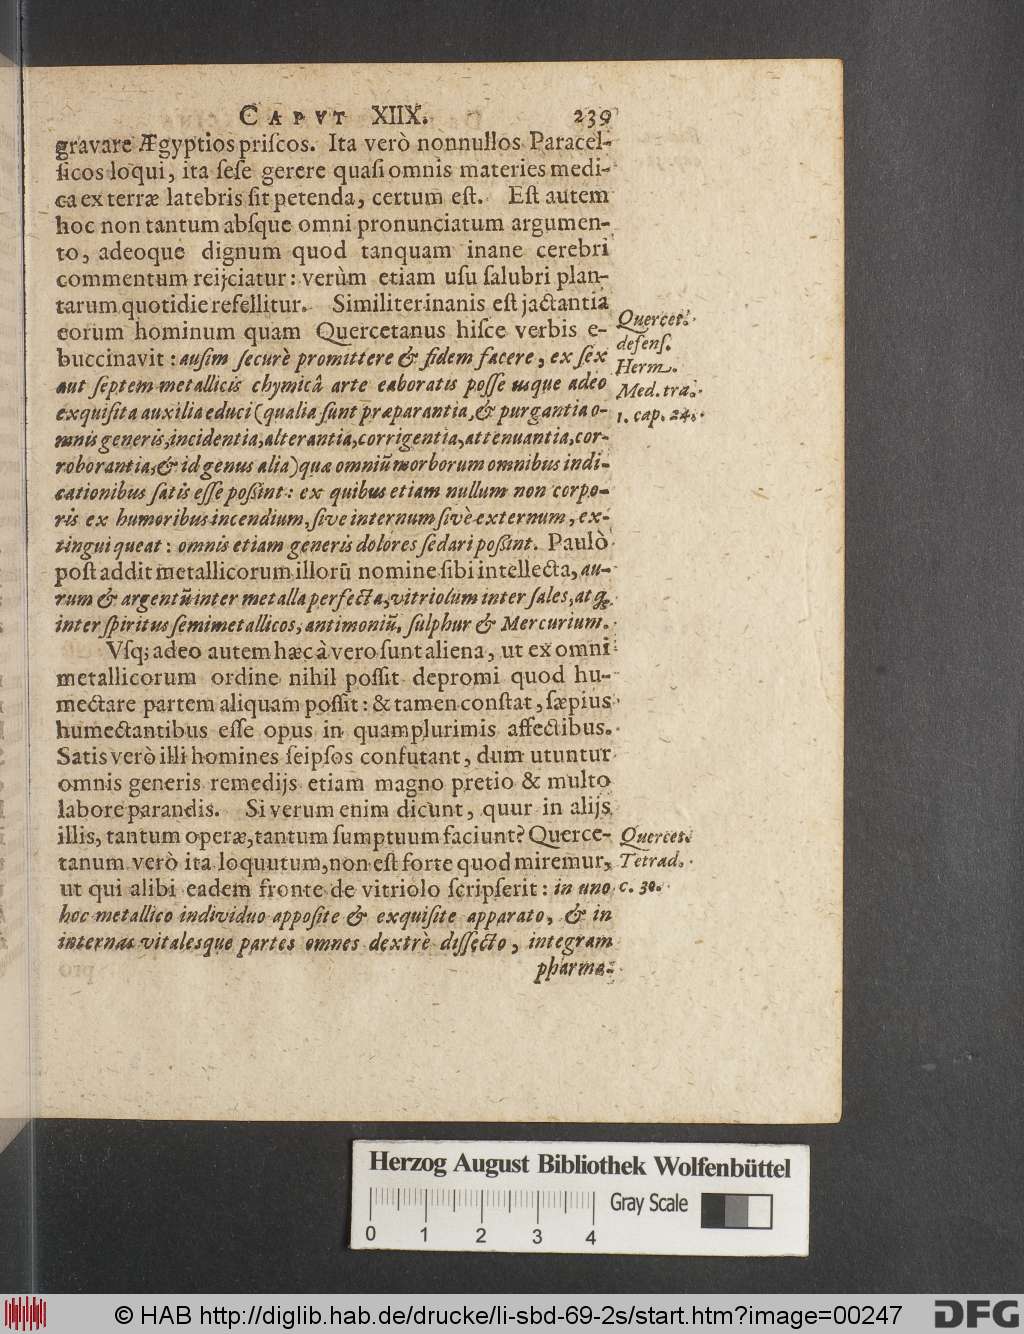 CAPVT XIIX. 239
gravare Ægyptios priſcos. Ita verò nonnullos Paracel-
ſicos loqui, ita ſeſe gerere quaſi omnis materies medi-
ca ex terræ latebris ſit petenda, certum eſt. Eſt autem
hoc non tantum abſque omni pronunciatum argumen-
to, adeoque dignum quod tanquam inane cerebri
commentum reijciatur: verùm etiam uſu ſalubri plan-
tarum quotidie refellitur. Similiter inanis eſt jactantia
eorum hominum quam Quercetanus hiſce verbis e-
buccinavit: auſim ſecurè promittere & fidem facere, ex ſex
aut ſeptem metallicis chymicâ arte eaboratis poſſe usque adeo
exquiſita auxilia educi (qualia ſunt præparantia, & purgantia o-
mnis generis, incidentia, alterantia, corrigentia, attenuantia, cor-
roborantia, & id genus alia) quæ omniũ morborum omnibus indi-
cationibus ſatis eſſe poßint: ex quibus etiam nullum non corpo-
ris ex humoribus incendium, ſive internum ſivè externum, ex-
tingui queat: omnis etiam generis dolores ſedari poßint. Paulò
poſt addit metallicorum illorũ nomine ſibi intellecta, au-
rum & argentũ inter metalla perfecta, vitriolum inter ſales, atq;
inter ſpiritus ſemimetallicos, antimoniũ, ſulphur & Mercurium.
Quercet.
defenſ.
Herm.
Med. tra.
1. cap. 24.
Vſq; adeo autem hæc à vero ſunt aliena, ut ex omni
metallicorum ordine nihil poſſit depromi quod hu-
mectare partem aliquam poſſit: & tamen conſtat, ſæpius
humectantibus eſſe opus in quamplurimis affectibus.
Satis verò illi homines ſeipſos confutant, dum utuntur
omnis generis remedijs etiam magno pretio & multo
labore parandis. Si verum enim dicunt, quur in alijs
illis, tantum operæ, tantum ſumptuum faciunt? Querce-
tanum verò ita loquutum, non eſt forte quod miremur,
ut qui alibi eadem fronte de vitriolo ſcripſerit: in uno
hoc metallico individuo appoſite & exquiſite apparato, & in
internas vitalesque partes omnes dextrè diſſecto, integram
pharma-
Quercet.
Tetrad.
c. 30.
Herzog August Bibliothek Wolfenbüttel
Gray Scale
0 1 2 3 4
© HAB http://diglib.hab.de/drucke/li-sbd-69-2s/start.htm?image=00247
DFG